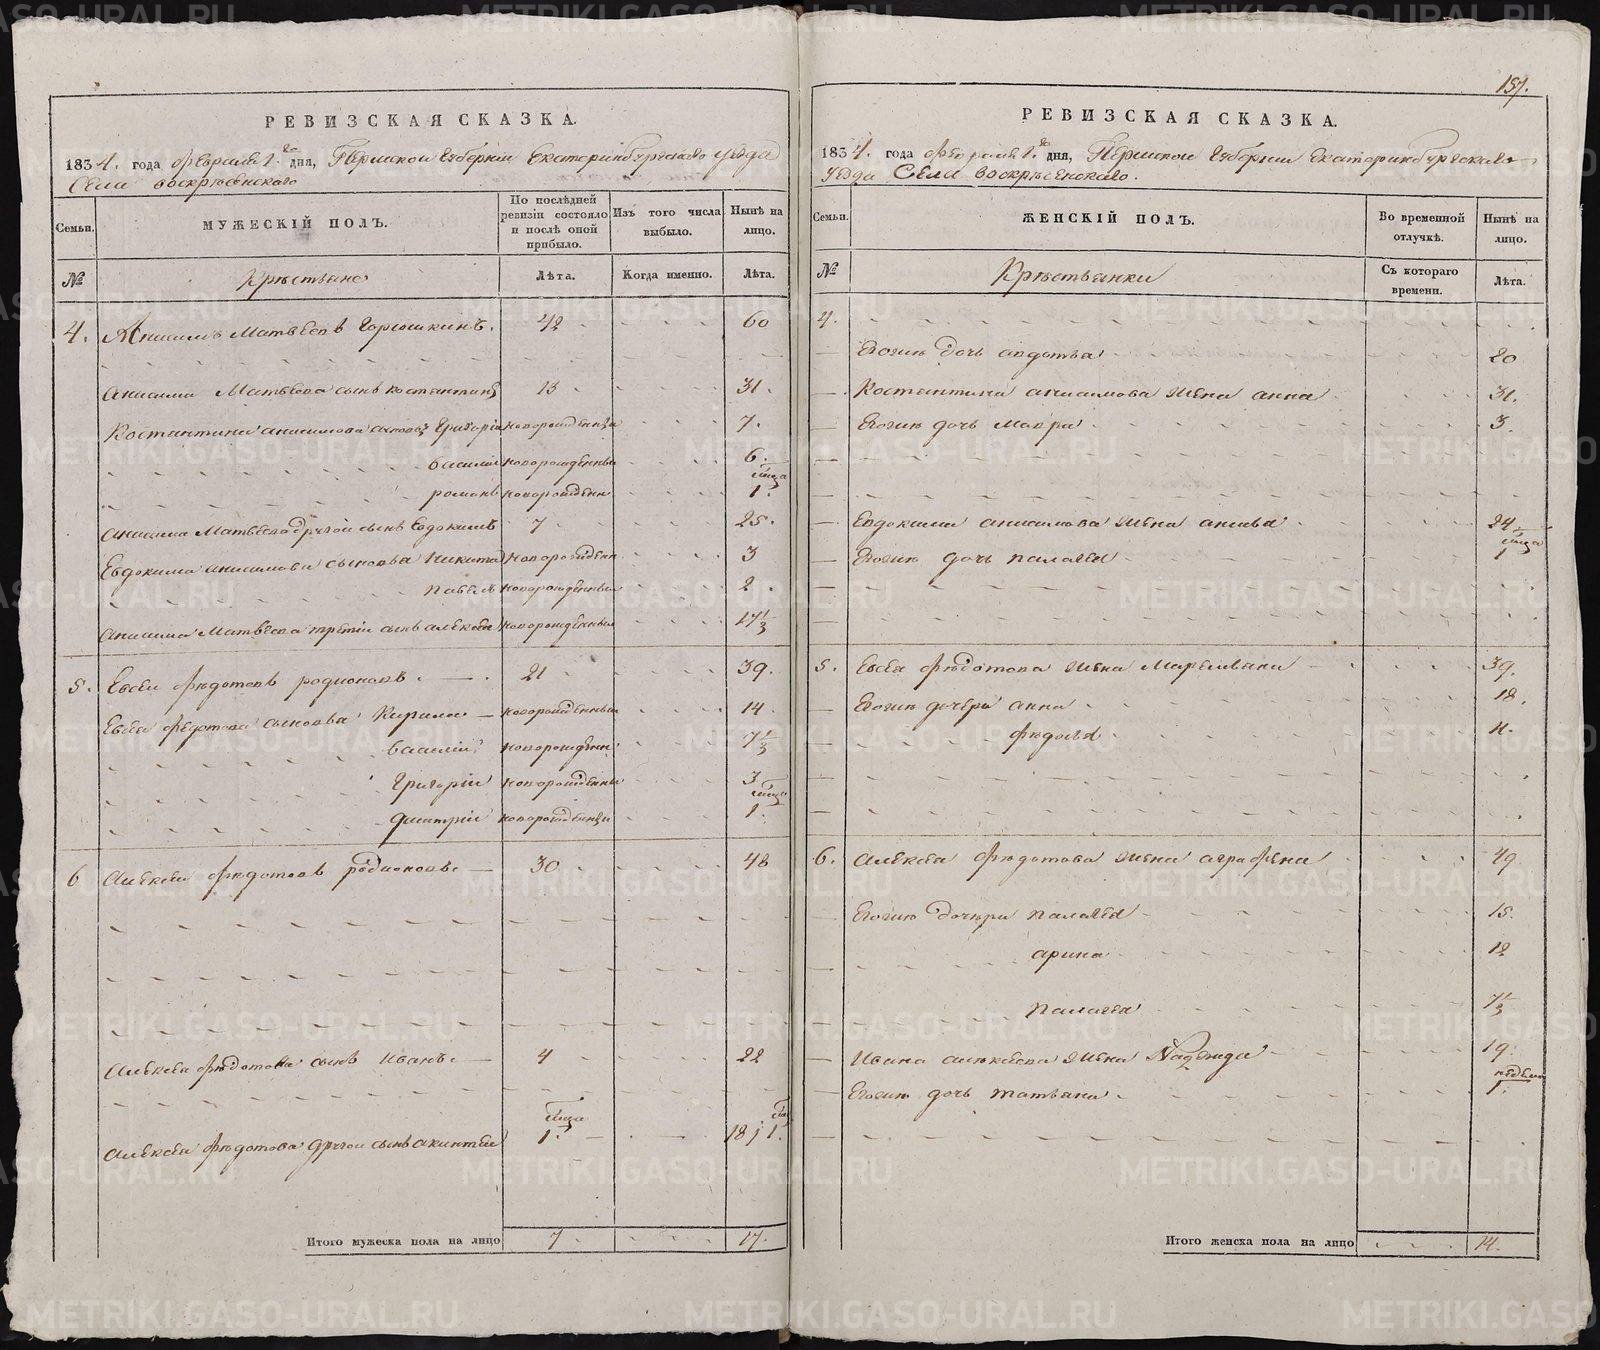 РЕВИЗСКАЯ СКАЗКА.
1834. года февраля 1. го дня, Пермской губернии Екатеринбургского уезда
Села воскресенского
Семьи. МУЖЕСКІЙ ПОЛЪ. По послѣдней ревизіи состояло и послѣ оной прибыло. Изъ того числа выбыло. Нынѣ на лицо.
№ Крестьяне Лѣта. Когда именно. Лѣта.
4. Анисимъ Матвеевъ Горюшкинъ. 42 60
Анисима Матвеева сынъ костантинъ 13 31.
Костантина анисимова сыновья Григорій новорожденны 7.
василій новорожденны 6.
романъ новорожденн мца 1.
Анисима Матвеева другой сынъ Евдокимъ 7 25.
Евдокима анисимова сыновья Никита новорожден 3
павелъ новорожденны 2
Анисима Матвеева третій сынъ алексей новорожденны 17 1/3
5. Евсей федотовъ родионовъ. 21 39.
Евсея федотова сыновья Кирило новорожденны 14
василій новорожденн 7 1/3
Григорій новорожденны 3
дмитрій новорожденны мца 1.
6 Алексей федотовъ родионовъ. 30 48
Алексея федотова сынъ Иванъ. 4 22
Алексея федотова другой сынъ акинтій мца 1. 18 и 1.
Итого мужеска пола на лицо 7 17.
157.
РЕВИЗСКАЯ СКАЗКА.
1834. года февраля 1. го дня, Пермской губернии Екатеринбургского
уезда Села воскресенского.
Семьи. ЖЕНСКІЙ ПОЛЪ. Во временной отлучкѣ. Нынѣ на лицо.
№ Крестьянки Съ котораго времени. Лѣта.
4.
Евогию дочь авдотья 20
Костантина анисимова жена анна 31.
Евогию дочь мавра 3.
Евдокима анисимова жена анисья 24
Евогию дочь палагея мца 1
5. Евсея федотова жена Маремьяна 39.
Евогию дочери анна 18.
федосья 11.
6. Алексея федотова жена аграфена 49
Евогию дочери палагея 15.
арина 12
палагея 7 1/3
Ивана алексеева жена Надежда 19
Евогию дочь татьяна неделя 1.
Итого женска пола на лицо 14.
METRIKI.GASO-URAL.RU